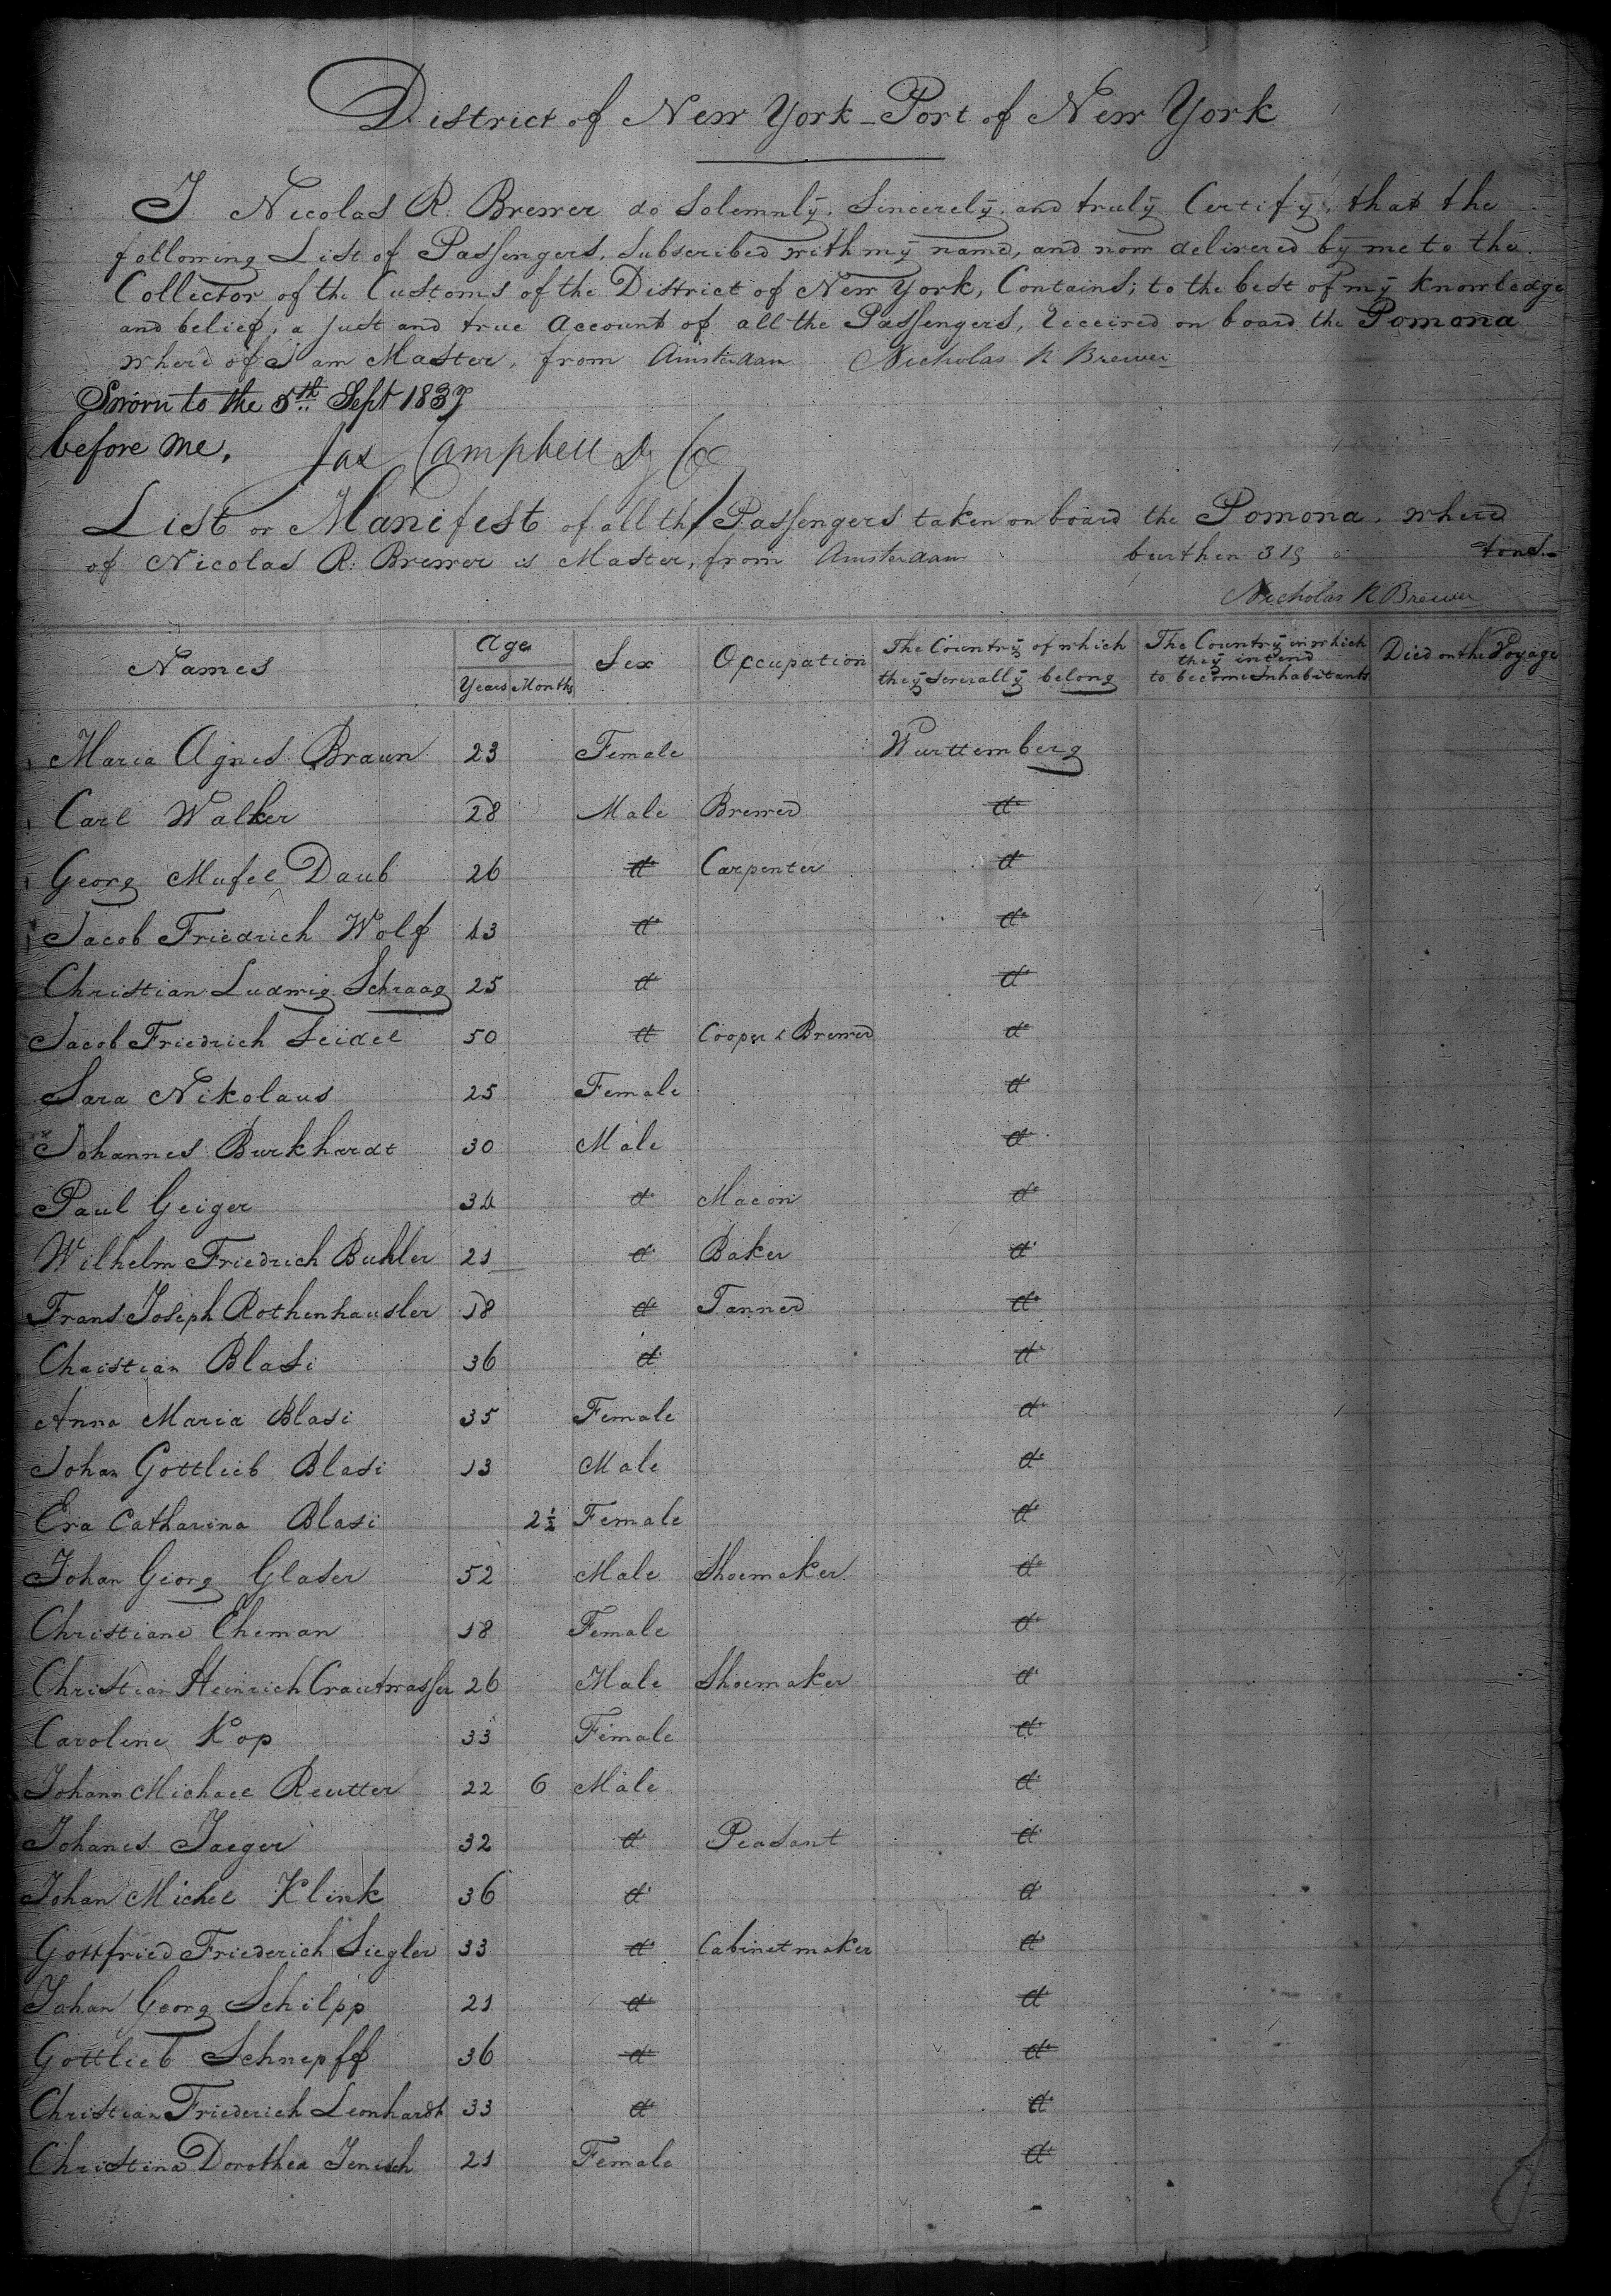 District of New York - Port of New York
I Nicolas R. Brewer do Solemnly, Sincerely, and truly Certify, that the
following List of Passengers, Subscribed with my name, and now delivered by me to the
Collector of the Customs of the District of New York, Contains; to the best of my knowledge
and belief, a just and true Account of all the Passengers, received on board the Pomona
where of I am Master, from Amsterdam Nicholas R Brewer
Sworn to the 5th Sept 1837
before me. Jas Campbell Dy Co
List or Manifest of all the Passengers taken on board the Pomona, where
of Nicolas R. Brewer is Master, from Amsterdam burthen 319 tons.
Nicholas R Brewer
Names Age Years Months Sex Occupation The Country of which they severally belong The Country in which they intend to become Inhabitants Died on the Voyage
Maria Agnes Braun 23 Female Wurttemberg
Carl Walker 28 Male Brewer do
Georg Mufel Daub 26 do Carpenter do
Jacob Friedrich Wolf 13 do do
Christian Ludwig Schraag 25 do do
Jacob Friedrich Seidel 50 do Cooper & Brewer do
Sara Nikolaus 25 Female do
Johannes Burkhardt 30 Male do
Paul Geiger do Macon do
Wilhelm Friedrich Buhler 21 do Baker do
Frans Joseph Rothenhausler 18 do Tanner do
Christian Blasi 36 do do
Anna Maria Blasi 35 Female do
Johan Gottlieb Blasi 13 Male do
Eva Catharina Blasi 2½ Female do
Johan Georg Glaser 52 Male Shoemaker do
Christiane Eheman 18 Female do
Christian Heinrich Crautwasser 26 Male Shoemaker do
Caroline Kop 33 Female do
Johann Michael Reutter 22 6 Male do
Johanes Jaeger 32 do Peasant do
Johan Michel Klink 36 do do
Gottfried Friederich Siegler 33 do Cabinetmaker do
Johan Georg Schilpp 21 do do
Gottlieb Schnepff 36 do do
Christian Friederich Leonhardt 33 do do
Christina Dorothea Jenisch 21 Female do